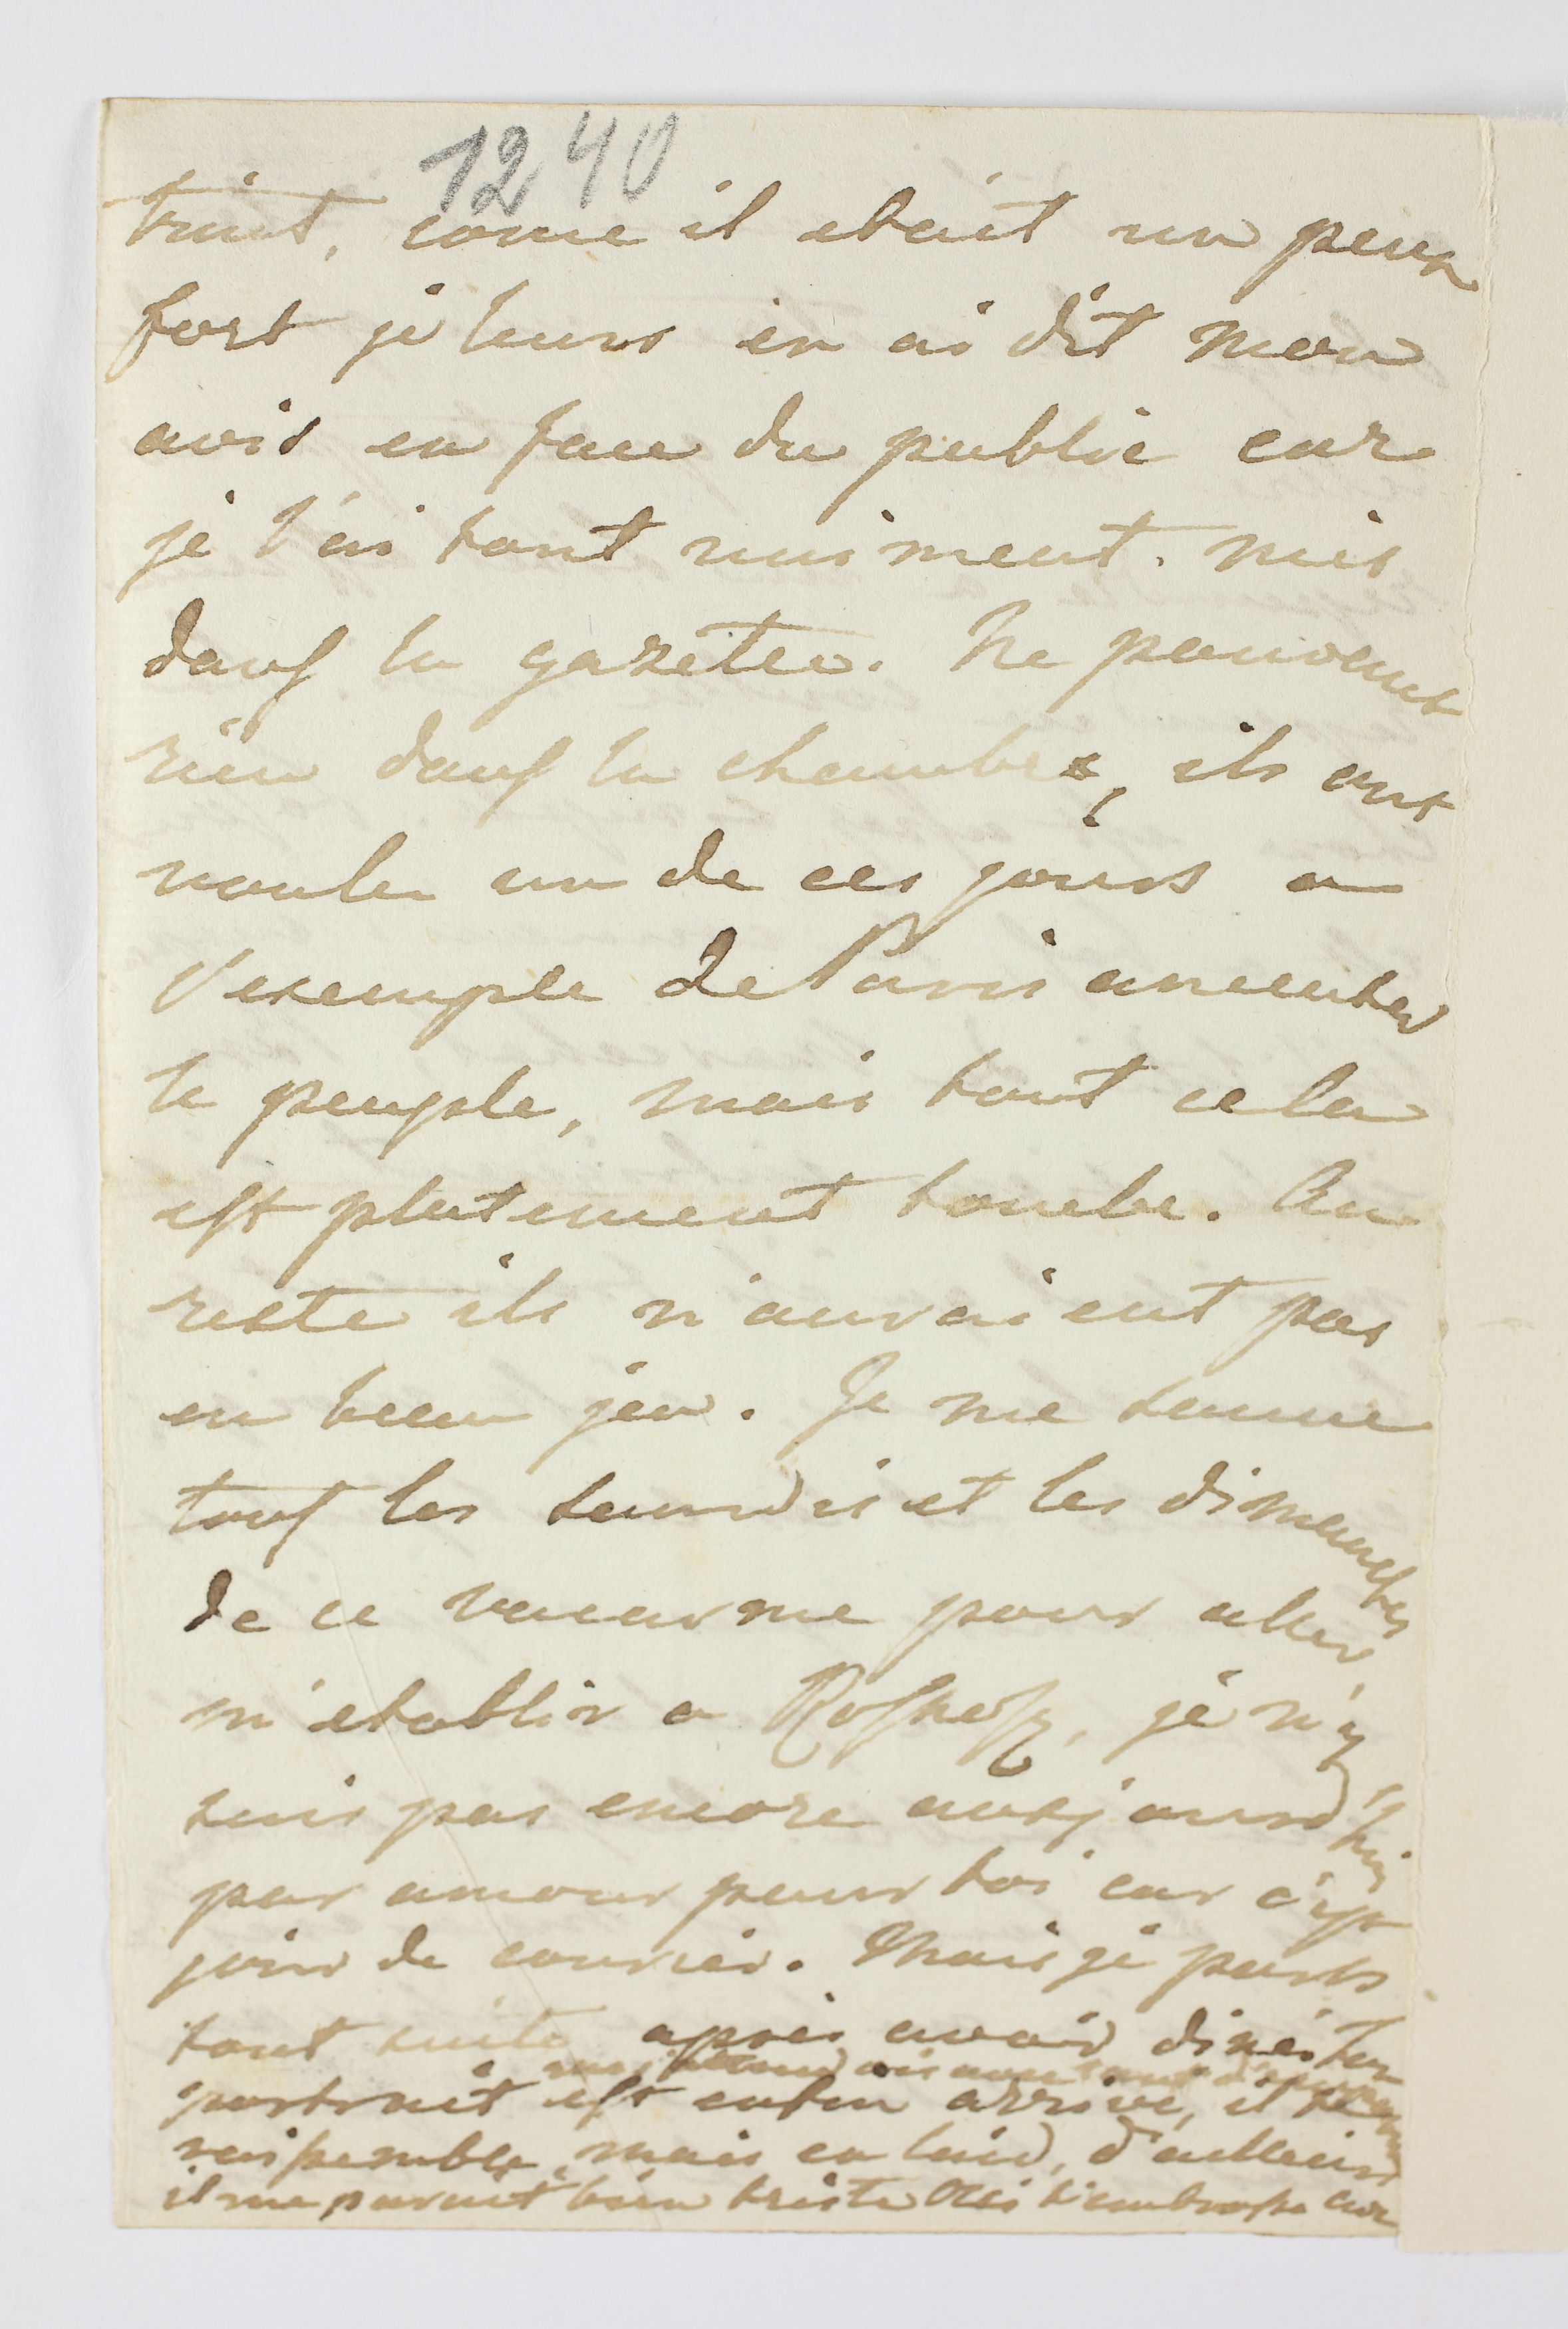 1240
trait, come il etait un peux
fort je leurs en ai dit mon
avis en face du public car
je l'ai tout uniment. mis
dans la gazette. Ne pouvent
rien dans la chambre, ils ont
voulu un de ces jours a
l'exemple de Paris ameuter
le peuple, mais tout cela
est platement tombe. Au
reste ils n'auraient pas
eu beau jeu. Je me sauve
tous les samdis et les dimanches
de ce vacarme pour aller
m'etablir a je n'y
suis pas encore aujourd'hui
par amour pour toi car c'est
joir de courier. Mais je parts
tout suite apres avoir diné. Ton
portrait est enfin arrivé, il te
ressemble, mais en laid, d'ailleurs
il me parait bien triste t'embrasse car